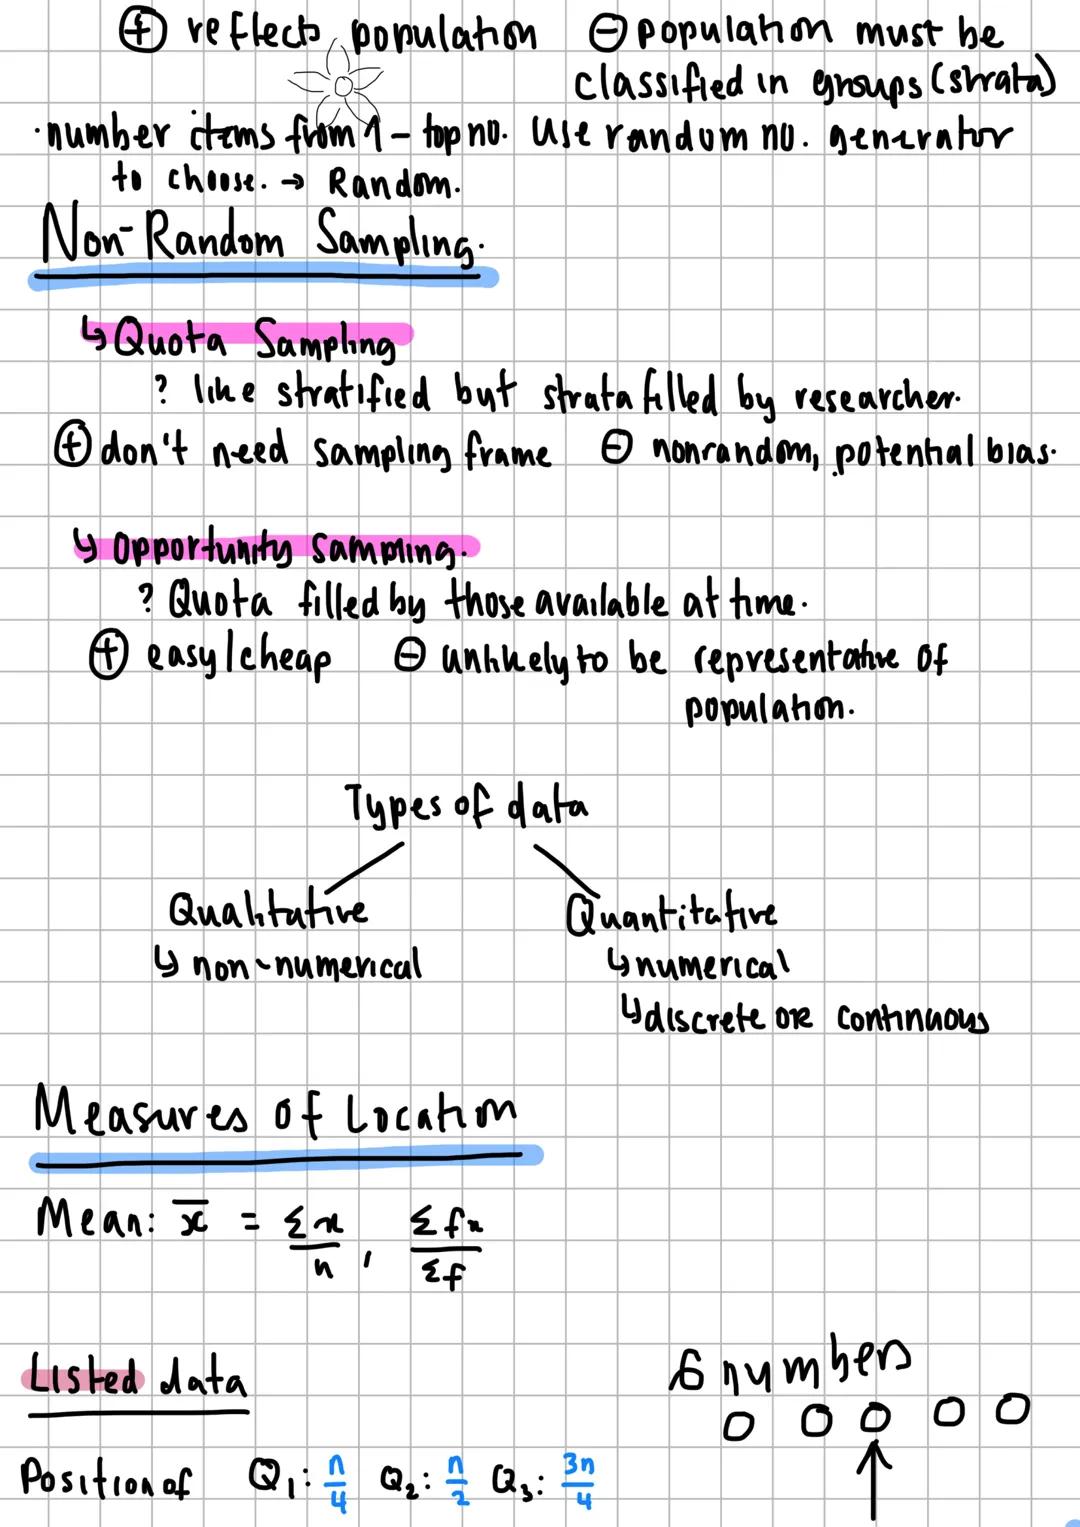 ⊕ reflects population ⊖ population must be
classified in groups (strata)
· number items from 1 – top no. Use random no. generator
to choose. → Random.
Non-Random Sampling.
↳ Quota Sampling
? like stratified but strata filled by researcher.
⊕ don't need sampling frame ⊖ nonrandom, potential bias.
↳ Opportunity Sampling.
? Quota filled by those available at time.
⊕ easy/cheap ⊖ unlikely to be representative of
population.
Types of data
Qualitative Quantitative
↳ non-numerical ↳ numerical
↳ discrete OR continuous
Measures of Location
Mean: x̄ = Σx/n , Σfx/Σf
Listed data
numbers
0 0 0 0 0
Position of Q₁: n/4 Q₂: n/2 Q₃: 3n/4